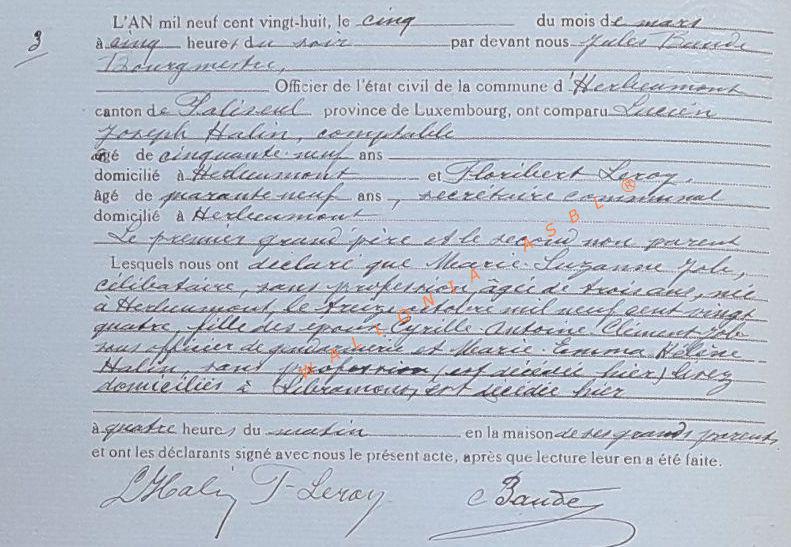 3
L'AN mil neuf cent vingt-huit, le cinq du mois de mars
à cinq heures du soir par devant nous Jules Baude
Bourgmestre,
Officier de l'état civil de la commune d'Herbeumont
canton de Paliseul province de Luxembourg, ont comparu Lucien
Joseph Halin, comptable
âgé de cinquante-neuf ans
domicilié à Herbeumont et Floribert Leroy,
âgé de quarante neuf ans, secrétaire communal
domicilié à Herbeumont
Le premier grand'père et le second non parent
Lesquels nous ont déclaré que Marie-Suzanne Job,
célibataire, sans profession âgée de trois ans, née
à Herbeumont, le treize octobre mil neuf cent vingt
quatre, fille des époux Cyrille-Antoine-Clément Job
sous officier de gendarmerie et Marie-Emma-Hélène
Halin, sans profession (est décédée hier) lisez
domiciliés à Libramont, est décédée hier
à quatre heures du matin en la maison de ses grands parents,
et ont les déclarants signé avec nous le présent acte, après que lecture leur en a été faite.
LHalin F-Leroy Baude
WALLONIA ASBL ®